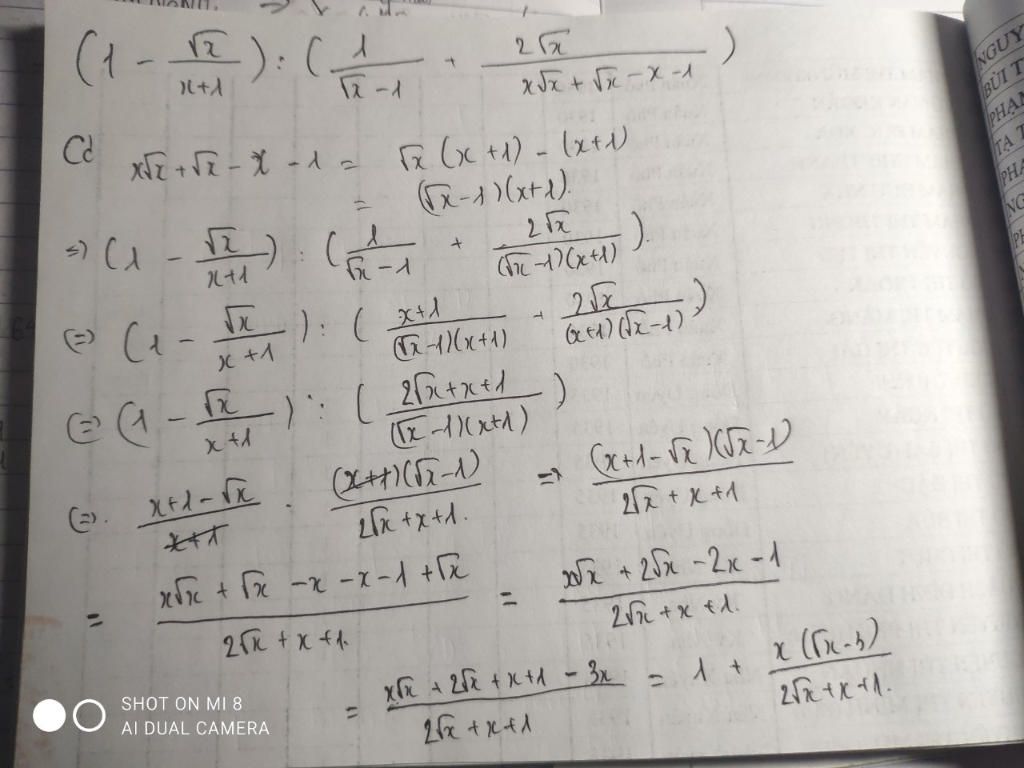 (1 - √x/(x+1)) : (1/(√x - 1) + 2√x/(x√x + √x - x - 1))
Có x√x + √x - x - 1 = √x (x+1) - (x+1)
= (√x - 1)(x+1).
=> (1 - √x/(x+1)) : (1/(√x - 1) + 2√x/((√x - 1)(x+1))).
(=) (1 - √x/(x+1)) : ((x+1)/((√x - 1)(x+1)) + 2√x/((x+1)(√x - 1)))
(=) (1 - √x/(x+1)) : ((2√x + x + 1)/((√x - 1)(x+1)))
(=). (x + 1 - √x)/(x+1) . ((x+1)(√x - 1))/(2√x + x + 1.) => ((x + 1 - √x)(√x - 1))/(2√x + x + 1)
= (x√x + √x - x - x - 1 + √x)/(2√x + x + 1.) = (x√x + 2√x - 2x - 1)/(2√x + x + 1.)
= (x√x + 2√x + x + 1 - 3x)/(2√x + x + 1) = 1 + (x(√x - 3))/(2√x + x + 1.)
SHOT ON MI 8
AI DUAL CAMERA
NGUY
BÙI T
PHẠN
TẠ T